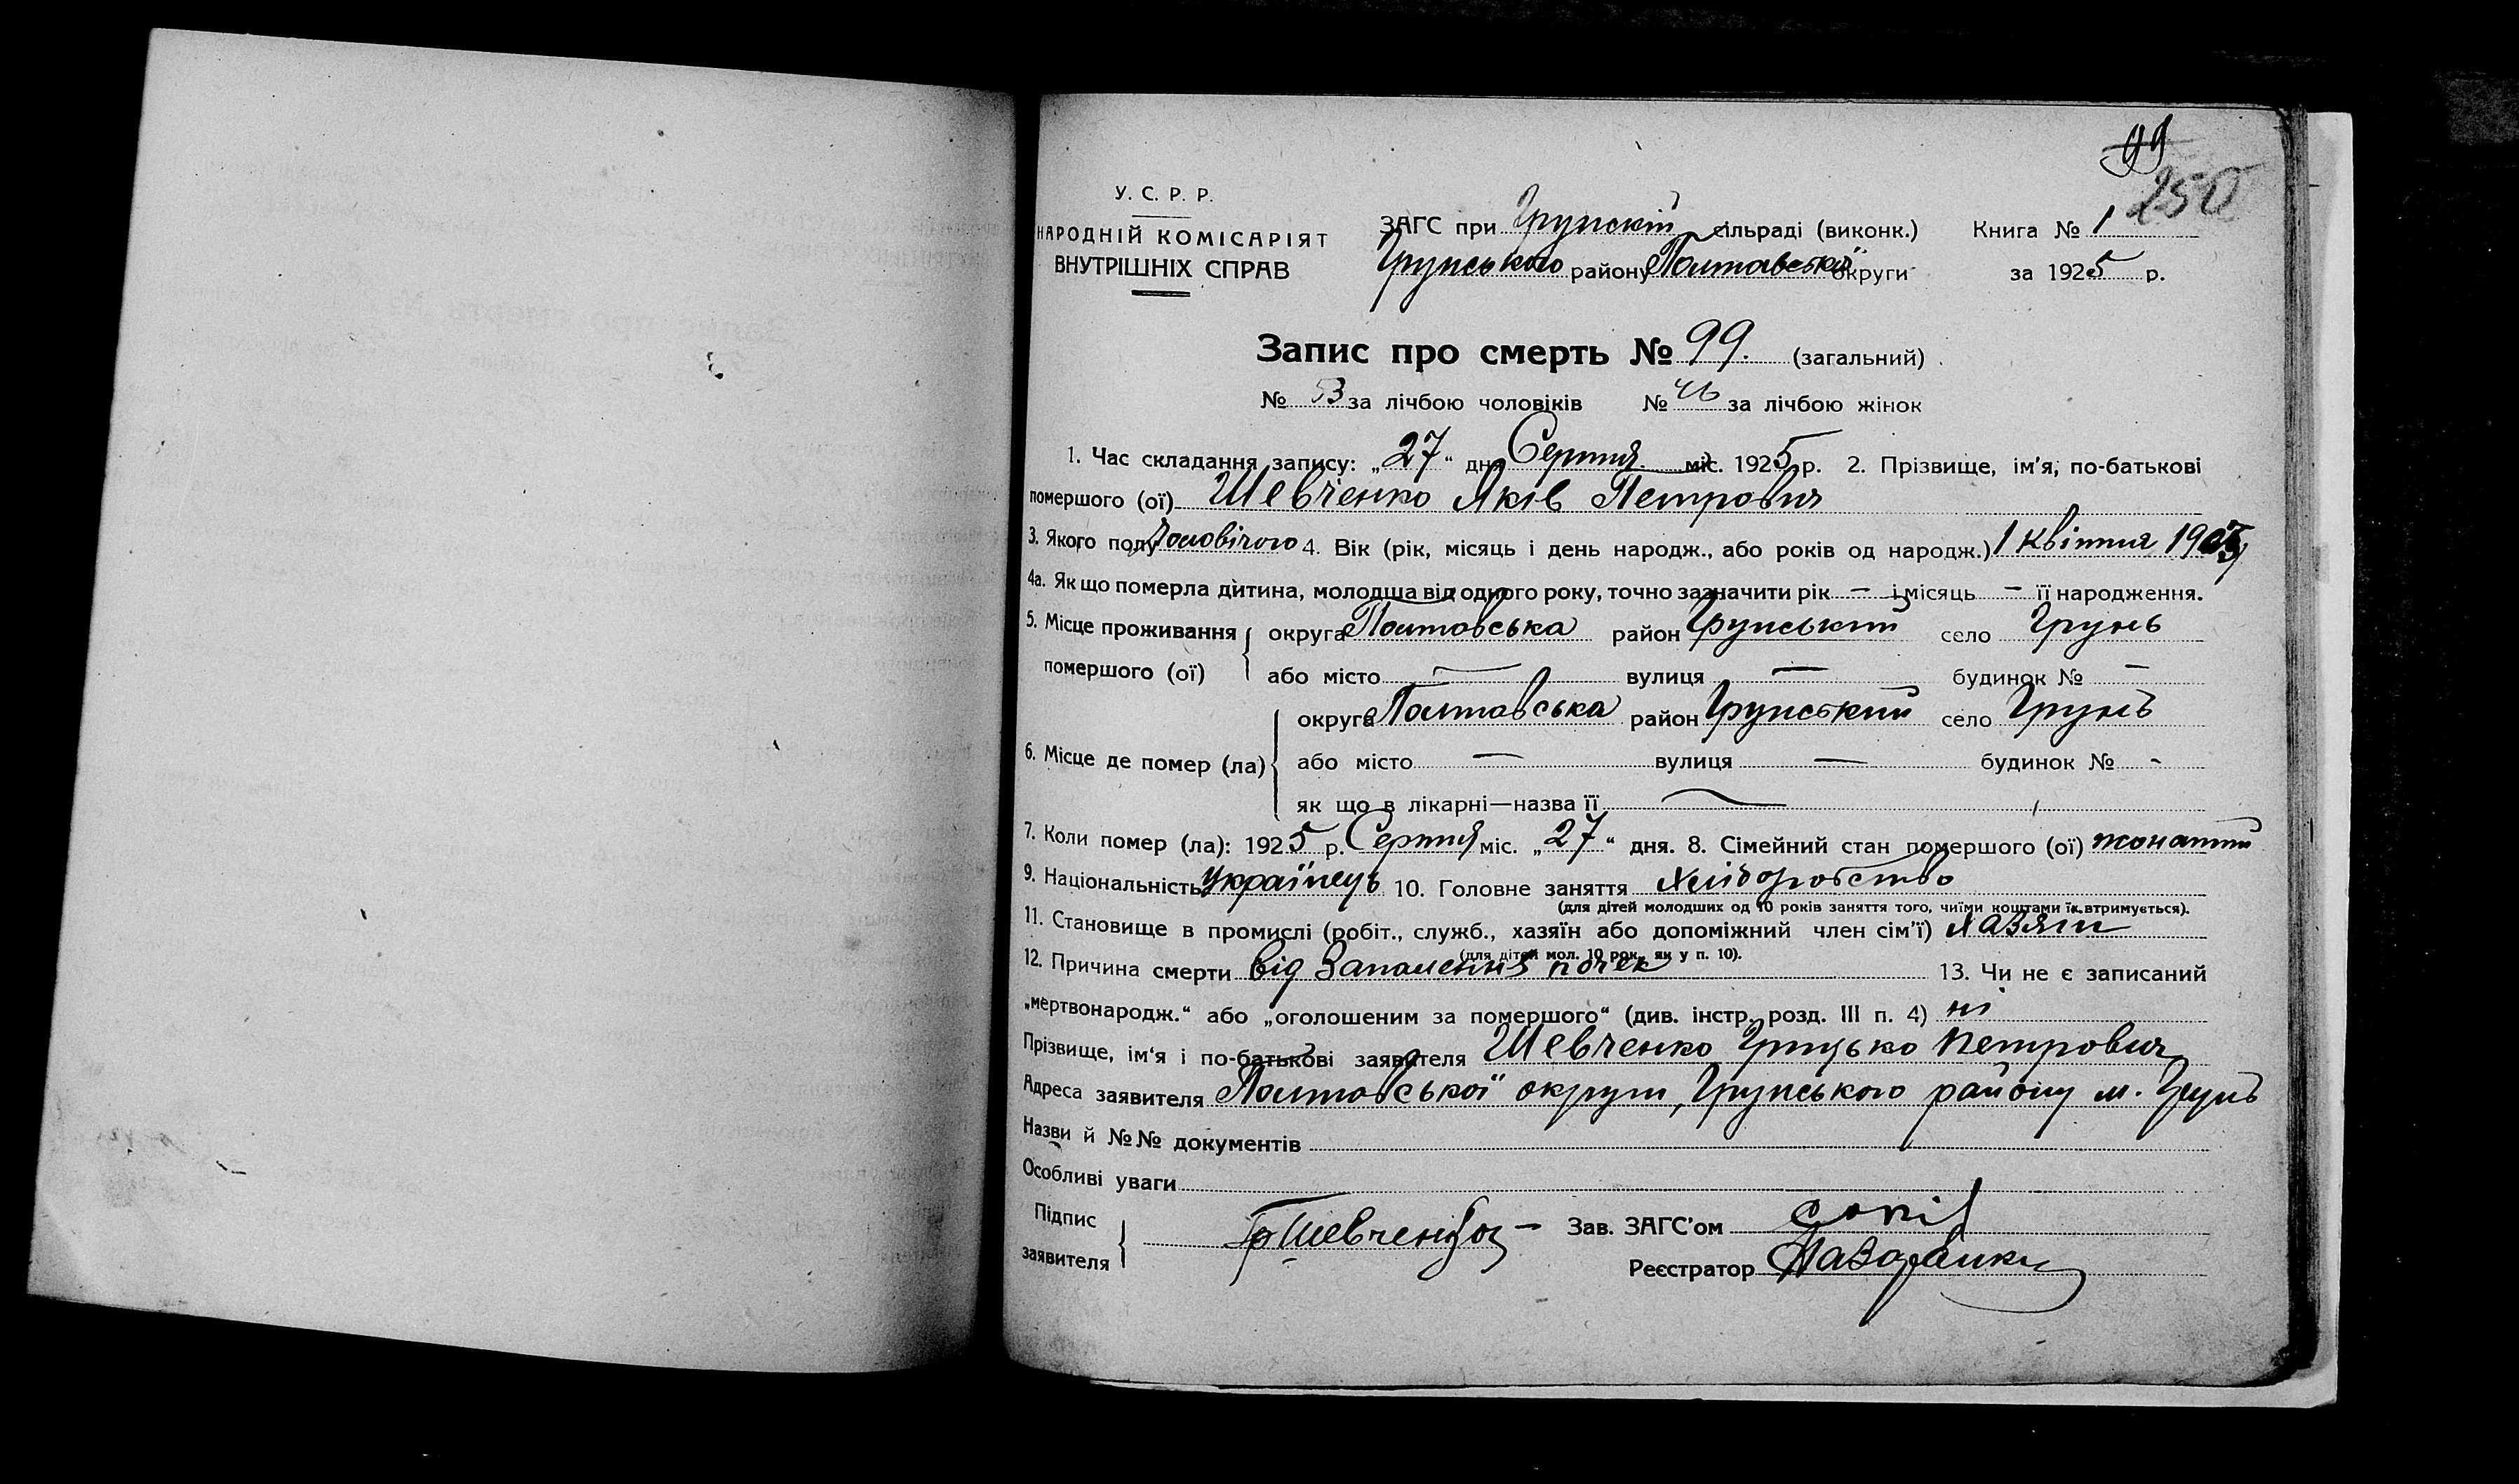 99
250
У. С. Р. Р.
НАРОДНІЙ КОМІСАРІЯТ
ВНУТРІШНІХ СПРАВ
ЗАГС при Грунській сільраді (виконк.)
Грунського району Полтавської округи
Книга № 1
за 1925 р.
Запис про смерть № 99. (загальний)
№ 53 за лічбою чоловіків № 46 за лічбою жінок
1. Час складання запису: „27“ дн. Серпня міс. 1925 р. 2. Прізвище, ім'я, по-батькові
померщого (ої) Шевченко Яків Петрович
3. Якого полу Чоловічого 4. Вік (рік, місяць і день народж., або років од народж.) 1 квітня
4а. Як що померла дитина, молодша від одного року, точно зазначити рік — і місяць — її народження.
5. Місце проживання померщого (ої) округа Полтавська район Грунський село Грунь
або місто — вулиця — будинок № —
6. Місце де помер (ла) округа Полтавська район Грунський село Грунь
або місто — вулиця — будинок № -
як що в лікарні—назва її —
7. Коли помер (ла): 1925 р. Серпня міс. „27“ дня. 8. Сімейний стан померщого (ої) жонатий
9. Національність українець 10. Головне заняття Хліборобство
(для дітей молодших од 10 років заняття того, чиїми коштами їх втримується).
11. Становище в промислі (робіт., служб., хазяїн або допоміжний член сім'ї) хазяїн
(для дітей мол. 10 рок., як у п. 10).
12. Причина смерти від Запалення почек 13. Чи не є записаний
„мертвонародж.“ або „оголошеним за померщого“ (див. інстр. розд. III п. 4) ні
Прізвище, ім'я і по-батькові заявителя Шевченко Грицько Петрович
Адреса заявителя Полтавської округи, Грунського району м. Грунь
Назви й №№ документів
Особливі уваги
Підпис заявителя Гр Шевченко — Зав. ЗАГС'ом
Реєстратор